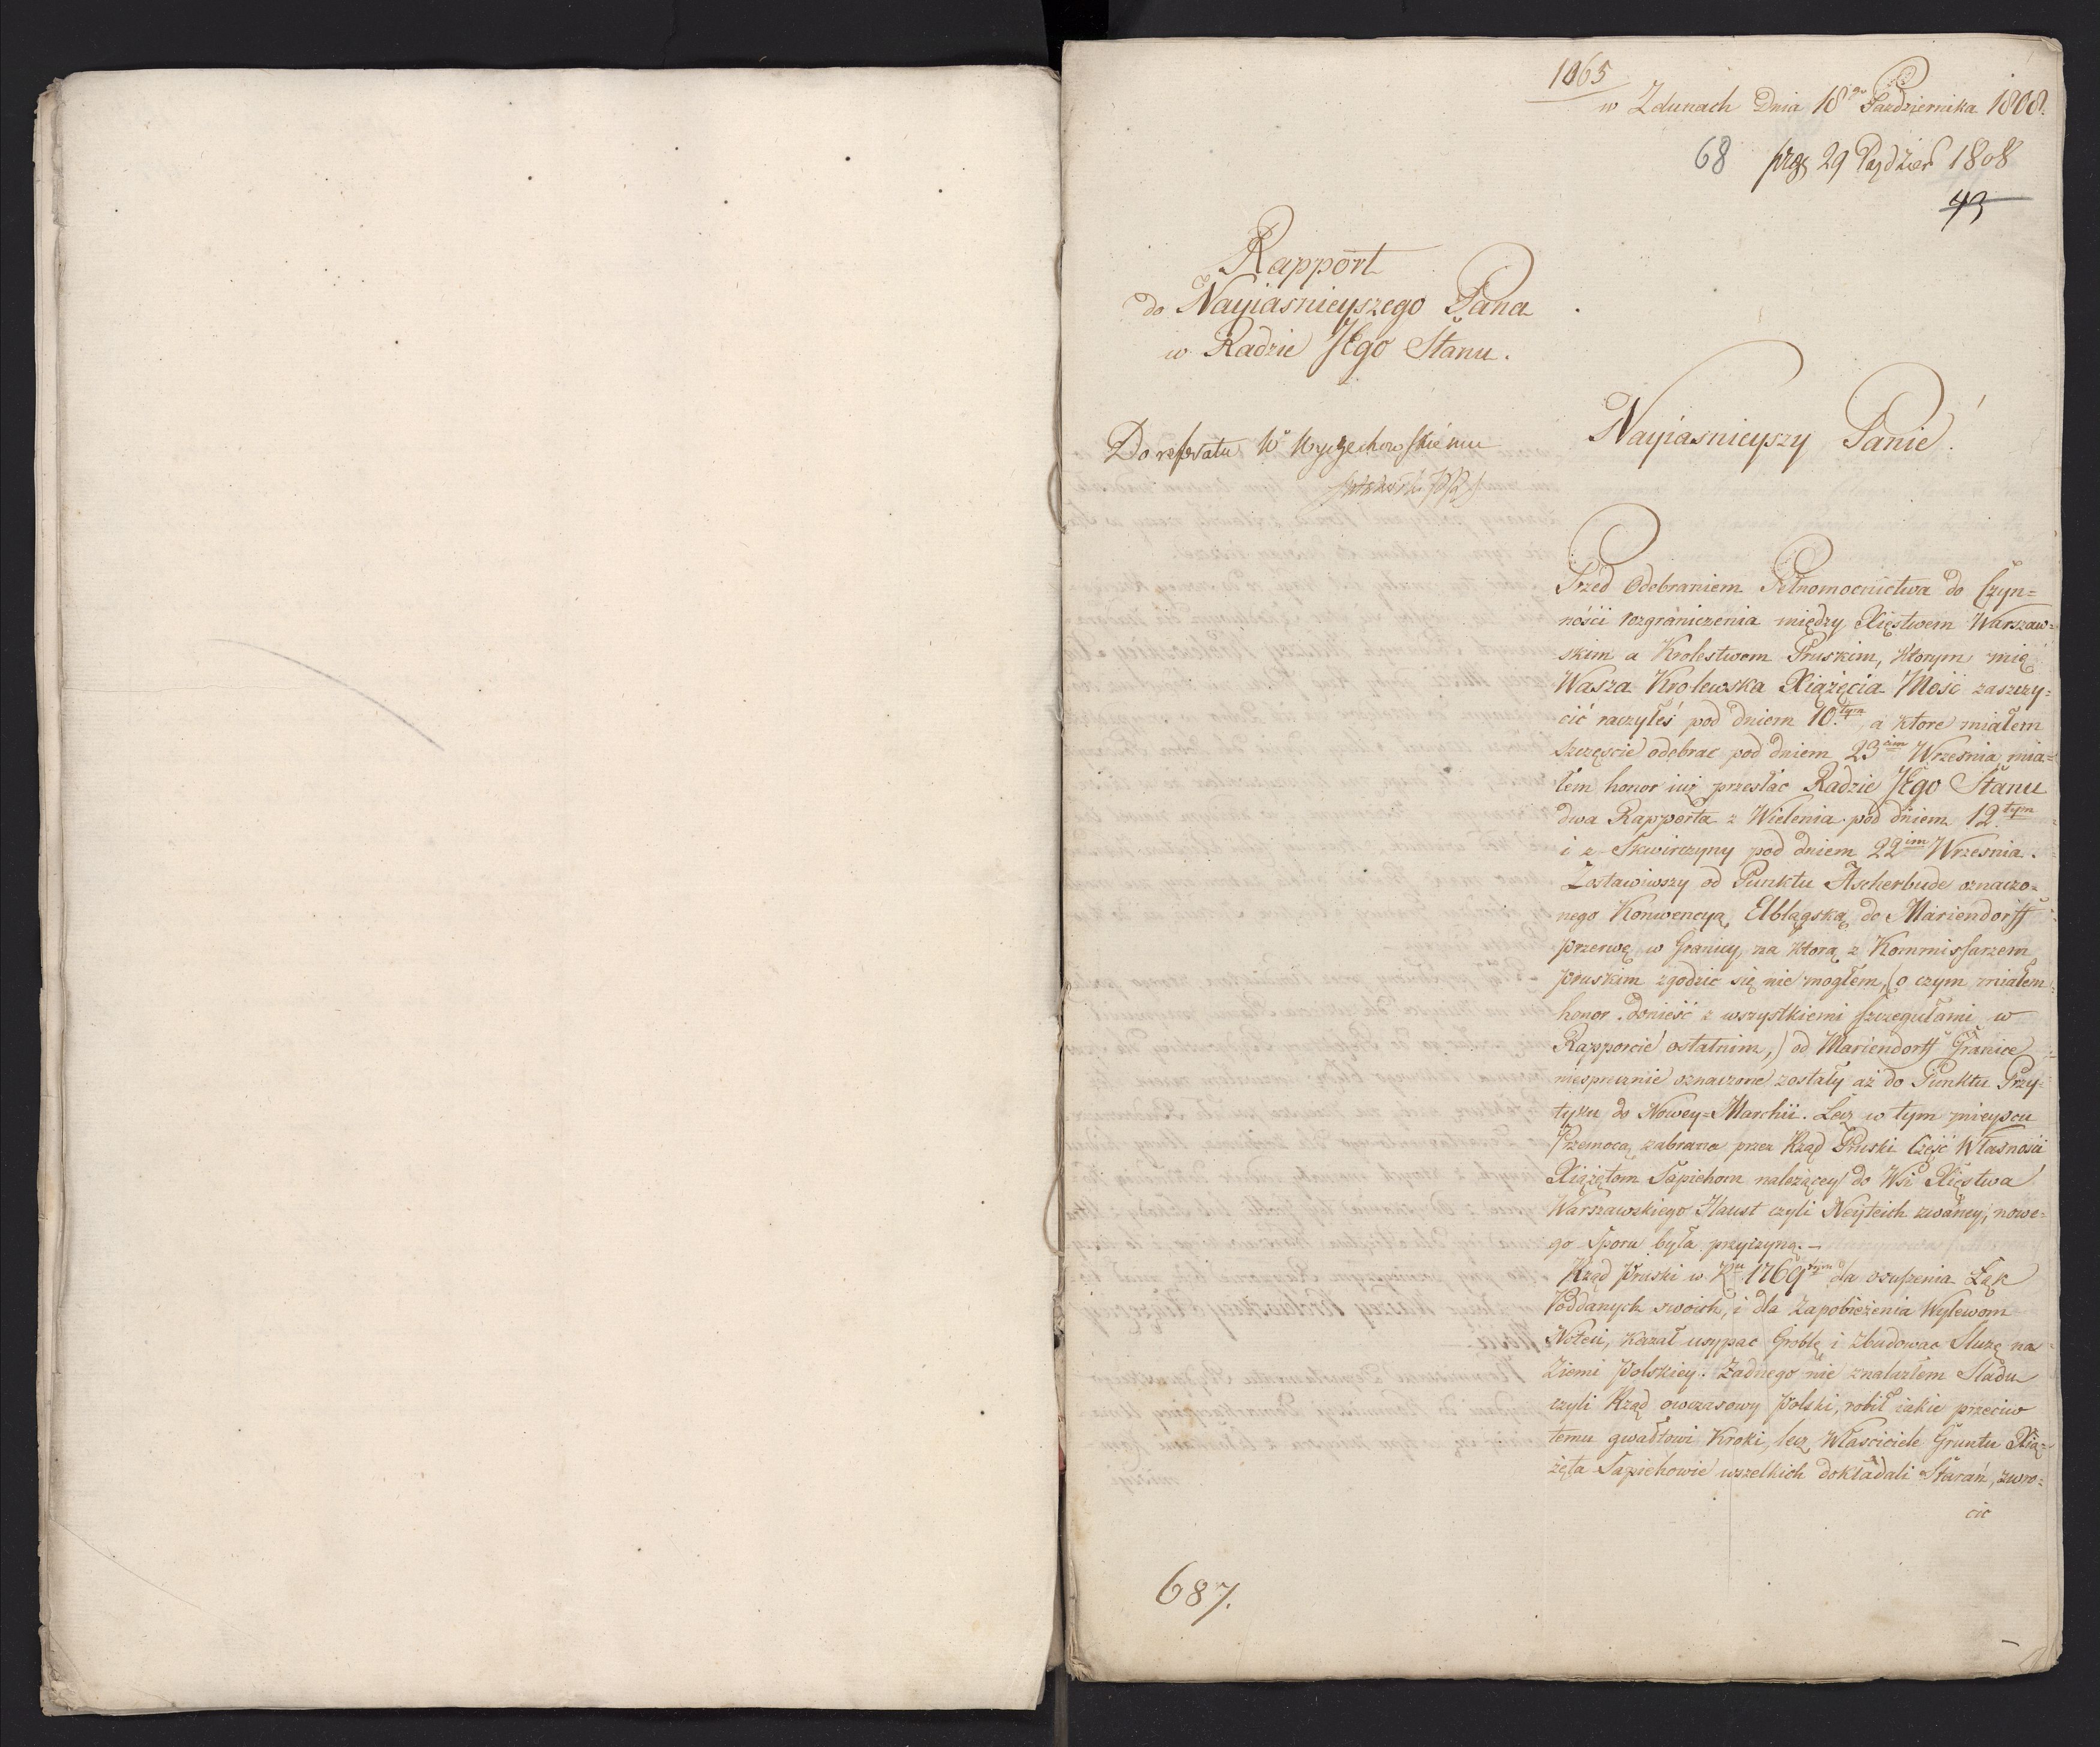 1065
w Zdunach Dnia 18go Pazdziernika 1808.
68 prez 29 Pazdzier 1808
43
Rapport
do Nayiasnieyszego Pana
w Radzie JEgo Stanu.
Do referatu W
Nayiasnieyszy Panie!
Przed Odebraniem Pełnomocnictwa do Czyn=
ności rozgraniczenia między Xięstwem Warszaw=
skim a Krolestwem Pruskim, ktorym mię
Wasza Krolewska Xiążęcia Mość zaszczy=
cić raczyłeś pod dniem 10.tym, a ktore miałem
szczęscie odebrac pod dniem 23cim Wrzesnia mia=
łem honor iuż przesłac Radzie JEgo Stanu
dwa Rapporta z Wielenia pod dniem 12.tym
i z Skwirczyny pod dniem 22im Wrzesnia.
Zostawiwszy od Punktu Ascherbude oznaczo=
nego Konwencyą Elblągską do Mariendorff
przerwę w Granicy, na ktorą z Kommissarzem
pruskim zgodzic się nie mogłem, (o czym miałem
honor donieść z wszystkiemi szczegułami w
Rapporcie ostatnim,) od Mariendorff Granice
niesprzecznie oznaczone zostały aż do Punktu Przy=
tyku do Nowey=Marchii. Lecz w tym mieyscu
Przemocą zabrana przez Rząd Pruski Część Własności
Xiążętom Sapiehom należącey do Wsi Xięstwa
Warszawskiego Haust czyli Neyteich zwaney, nowe=
go Sporu była przyczyną. –
Rząd Pruski w Rku 1769tym dla osuszenia Łąk
Poddanych swoich, i dla Zapobieżenia Wylewom
Noteci, kazał usypac Groblę i zbudowac Sluzę na
Ziemi Polskiey. Żadnego nie znalazłem Sladu
czyli Rząd owczasowy Polski, robił iakie przeciw
temu gwałtowi Kroki, lecz Własciciele Gruntu Xią=
żęta Sapiehowie wszelkich dokładali Starań, zwro=
cic
687.